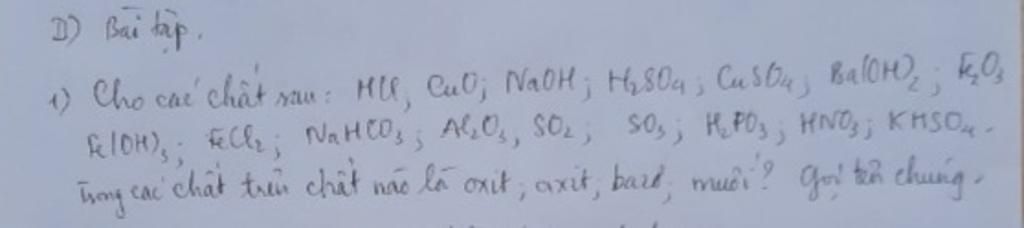 II) Bài tập.
1) Cho các chất sau: HCl; CuO; NaOH; H₂SO₄; CuSO₄; Ba(OH)₂; Fe₂O₃
Fe(OH)₃; FeCl₂; NaHCO₃; Al₂O₃, SO₂; SO₃; H₂PO₃; HNO₃; KHSO₄.
Trong các chất trên chất nào là oxit; axit; bazơ; muối? gọi tên chúng.